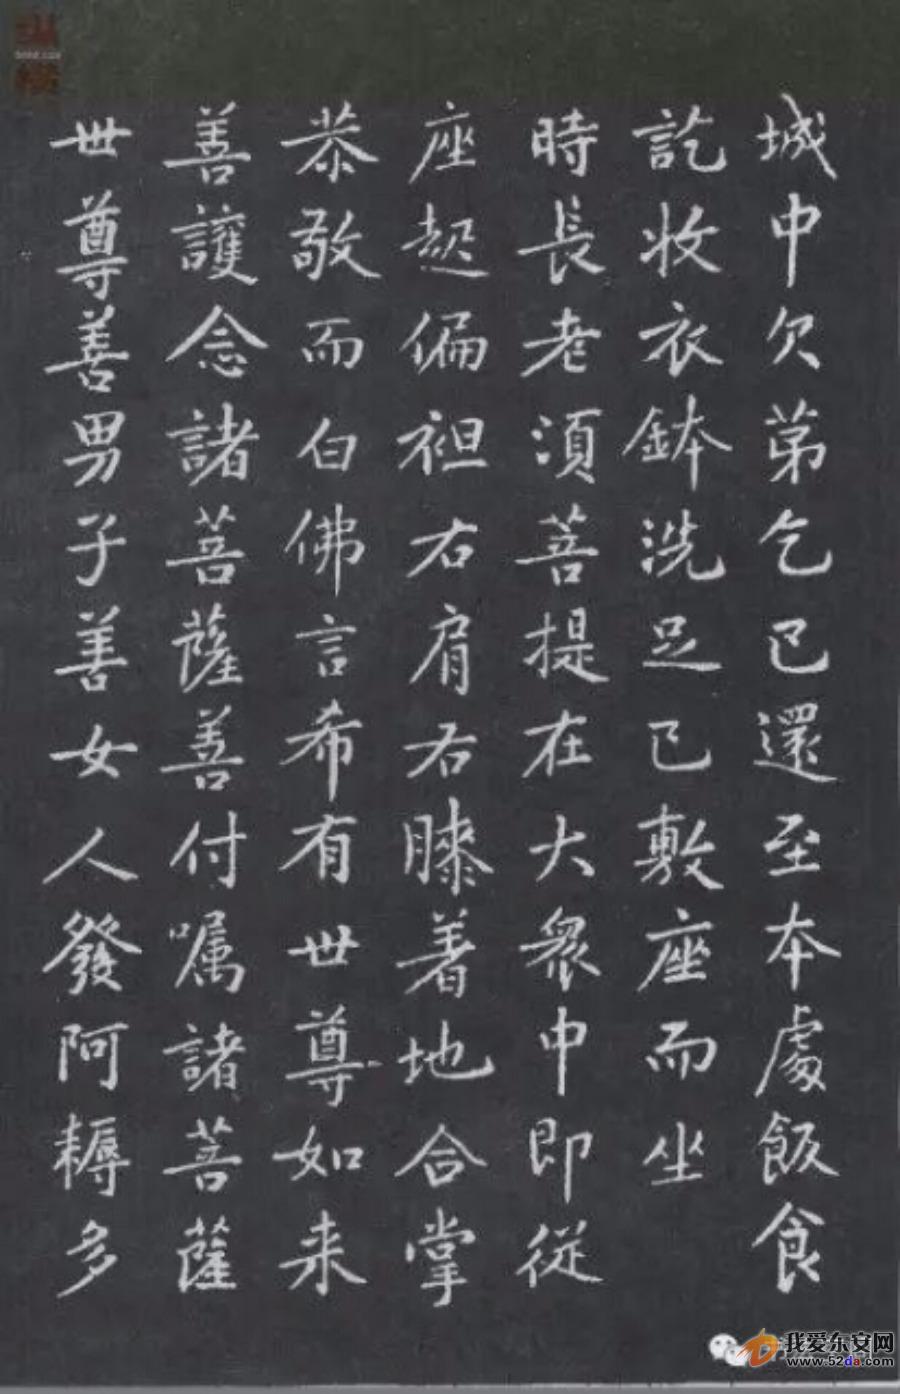 城中次第乞已還至本處飯食
訖收衣鉢洗足已敷座而坐
時長老須菩提在大衆中即從
座起偏袒右肩右膝着地合掌
恭敬而白佛言希有世尊如来
善護念諸菩薩善付嘱諸菩薩
世尊善男子善女人發阿耨多
我爱东安网
www.52da.com